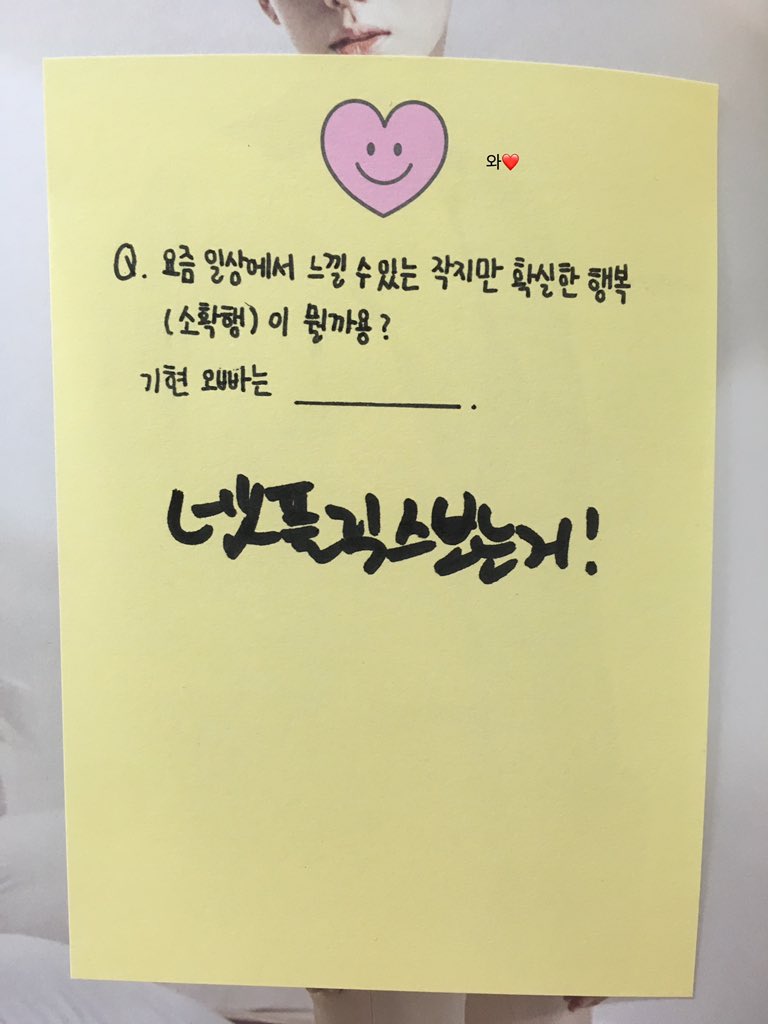 와❤️
Q. 요즘 일상에서 느낄 수 있는 작지만 확실한 행복
(소확행)이 뭘까용?
기현 오빠는 __________.
넷플릭스보는거!